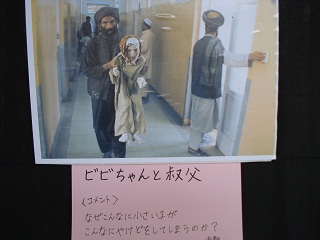 ビビちゃんと叔父
〈コメント〉
なぜこんなに小さい子が
こんなにやけどをしてしまうのか?